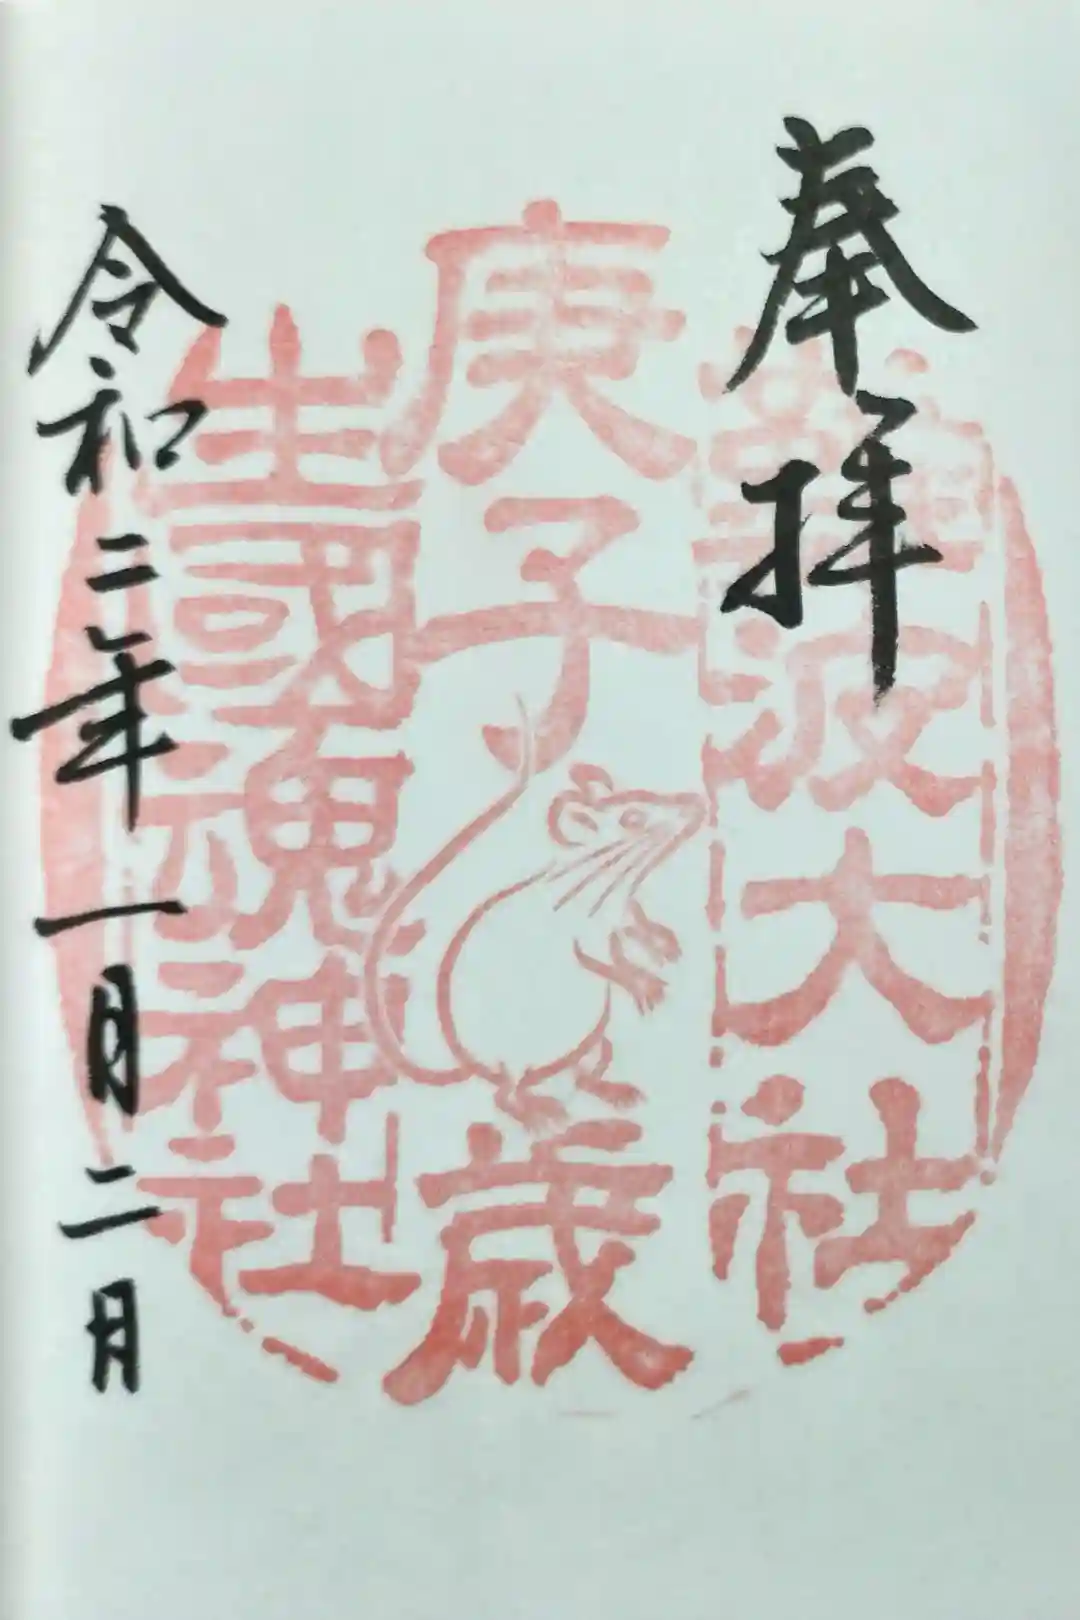 奉拝
難波大社
庚子歳
生國魂神社
令和二年一月二月